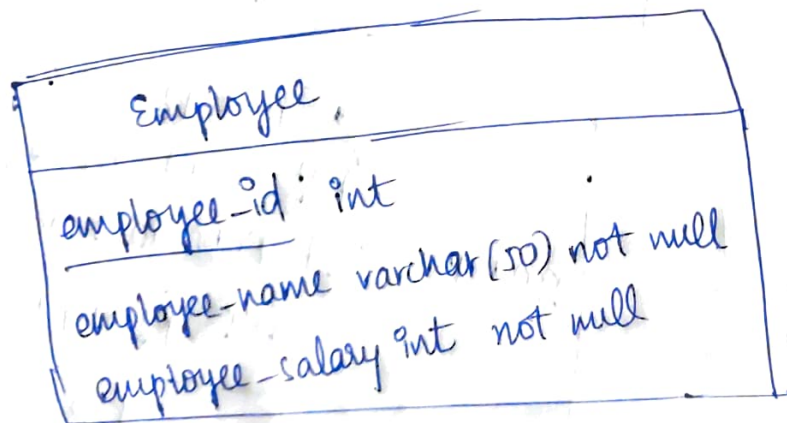 Employee
employee_id int
employee_name varchar(50) not null
employee_salary int not null